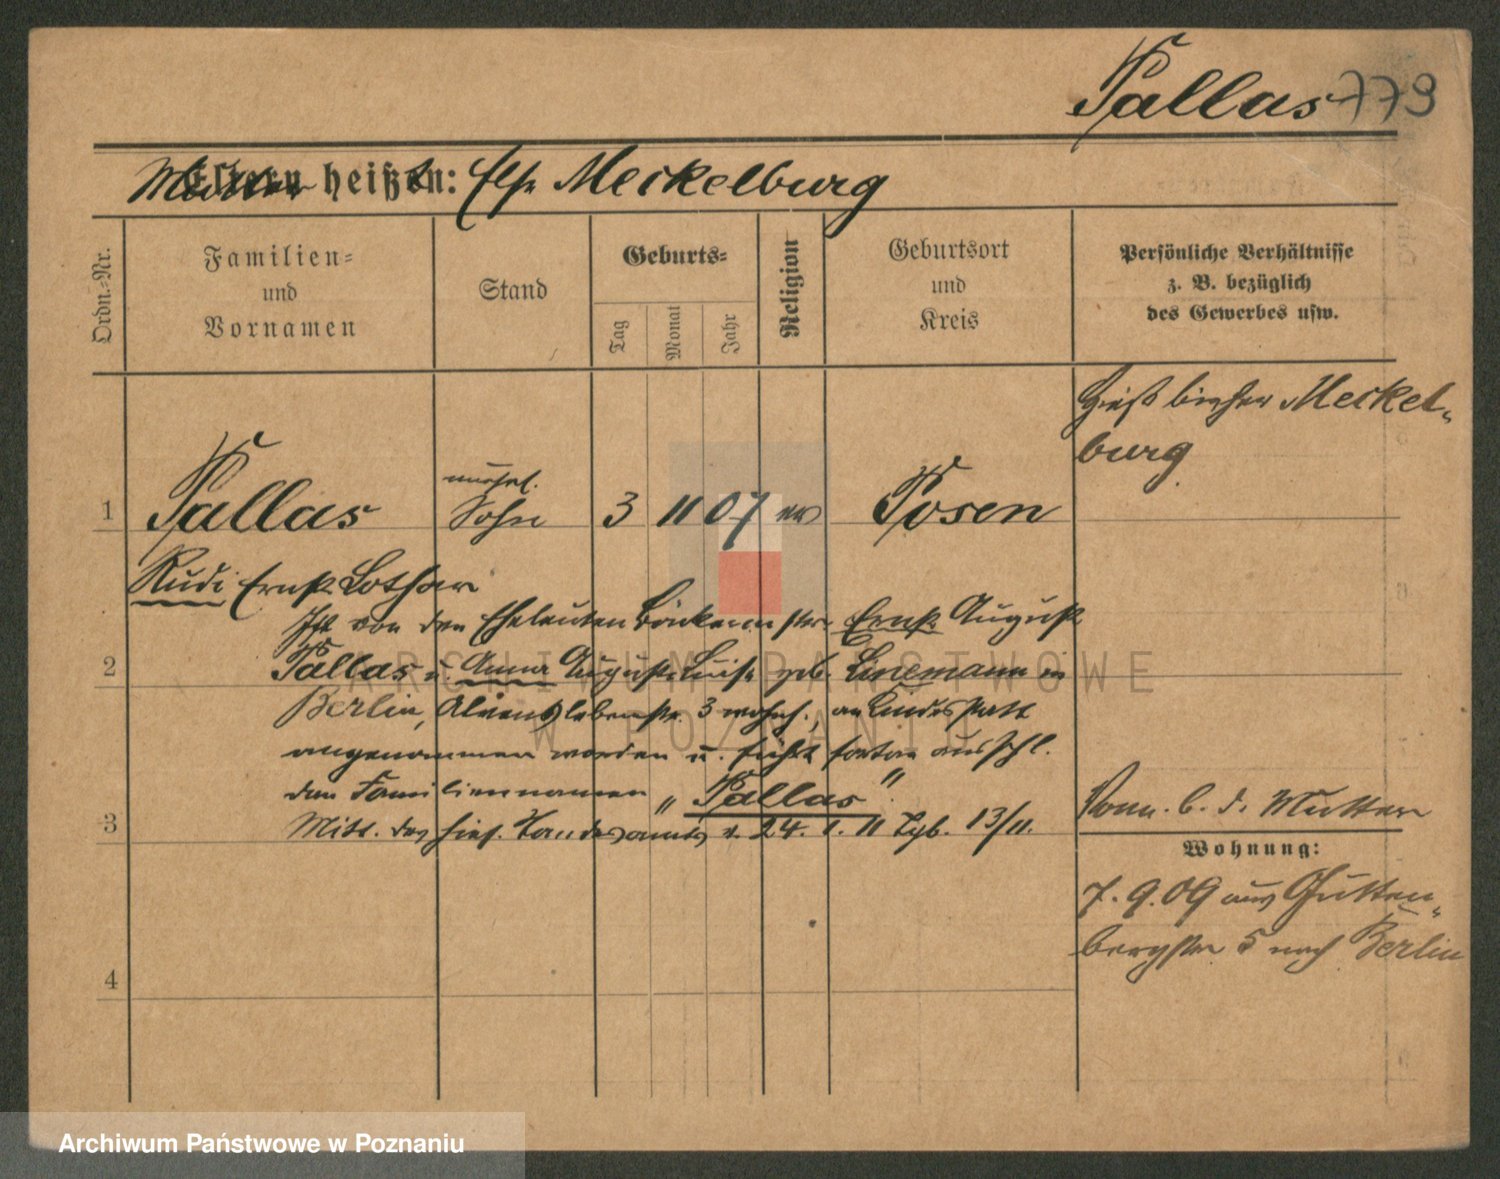 Pallas 779
Mutter heißt: Else Meckelburg
Ordn.-Nr.
Familien-
und
Vornamen
Stand
Geburts-
Tag
Monat
Jahr
Religion
Geburtsort
und
Kreis
Persönliche Verhältnisse
z. B. bezüglich
des Gewerbes usw.
Hieß bisher Meckel-
burg
unehel.
1 Pallas Sohn 3 11 07 ev Posen
Rudi Ernst Lothar
Ist von den Eheleuten Bäckermstr. Ernst August
2 Pallas u. Anna Auguste Luise geb. Linemann in
Berlin, Alvenslebenstr. 3 wohnh., an Kindesstatt
angenommen worden u. führt fortan ausschl.
den Familiennamen „Pallas"
3 Mitt. des hies. Standesamts v. 24. 1. 11 Tgb. 13/11.
Vorm. b. d. Mutter
Wohnung:
7. 9. 09 aus Gutten-
bergstr 5 nach Berlin
4
ARCHIWUM PAŃSTWOWE
W POZNANIU
Archiwum Państwowe w Poznaniu